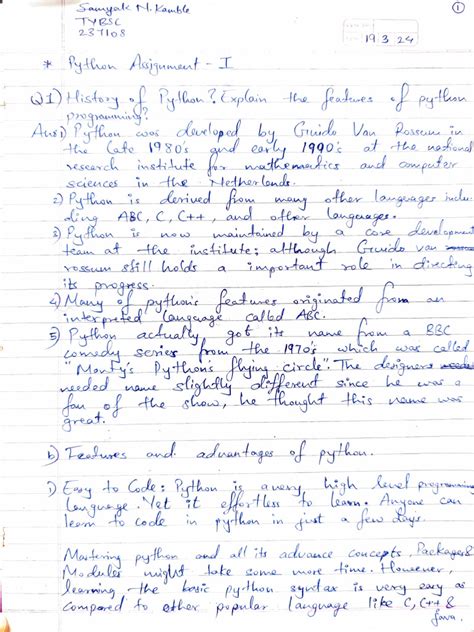 Samyak N. Kamble
TYBSC
237108
1
19.3.24
* Python Assignment - I
Q1) History of Python? Explain the features of python
programming?
Ans1) Python was developed by Guido Van Rossum in
the late 1980's and early 1990's at the national
research institute for mathematics and computer
sciences in the Netherlands.
2) Python is derived from many other languages inclu-
ding ABC, C, C++, and other languages.
3) Python is now maintained by a core development
team at the institute; although Guido van
rossum still holds a important role in directing
its progress.
4) Many of python's features originated from an
interpreted language called ABC.
5) Python actually got its name from a BBC
comedy series from the 1970's which was called
"Monty's Python's flying circle". The designers
needed name slightly different since he was a
fan of the show, he thought this name was
great.
b) Features and advantages of python.
1) Easy to Code: Python is a very high level programming
language. Yet it effortless to learn. Anyone can
learn to code in python in just a few days.
Mastering python and all its advance concepts, Packages &
Modules might take some more time. However,
learning the basic python syntax is very easy as
compared to other popular language like C, C++ &
Java.